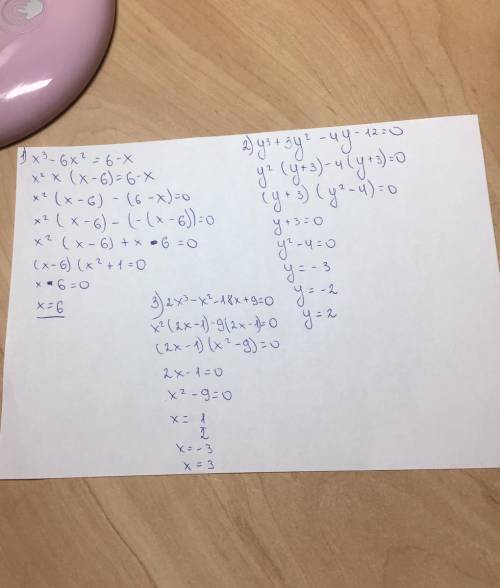 1) x³ - 6x² = 6 - x
x² × (x-6) = 6 - x
x² (x-6) - (6-x) = 0
x² (x-6) - (-(x-6)) = 0
x² (x-6) + x - 6 = 0
(x-6) (x² + 1 = 0
x - 6 = 0
x = 6
2) y³ + 3y² - 4y - 12 = 0
y² (y+3) - 4 (y+3) = 0
(y+3) (y² - 4) = 0
y + 3 = 0
y² - 4 = 0
y = -3
y = -2
y = 2
3) 2x³ - x² - 18x + 9 = 0
x² (2x-1) - 9 (2x-1) = 0
(2x-1) (x² - 9) = 0
2x - 1 = 0
x² - 9 = 0
x = 1/2
x = -3
x = 3